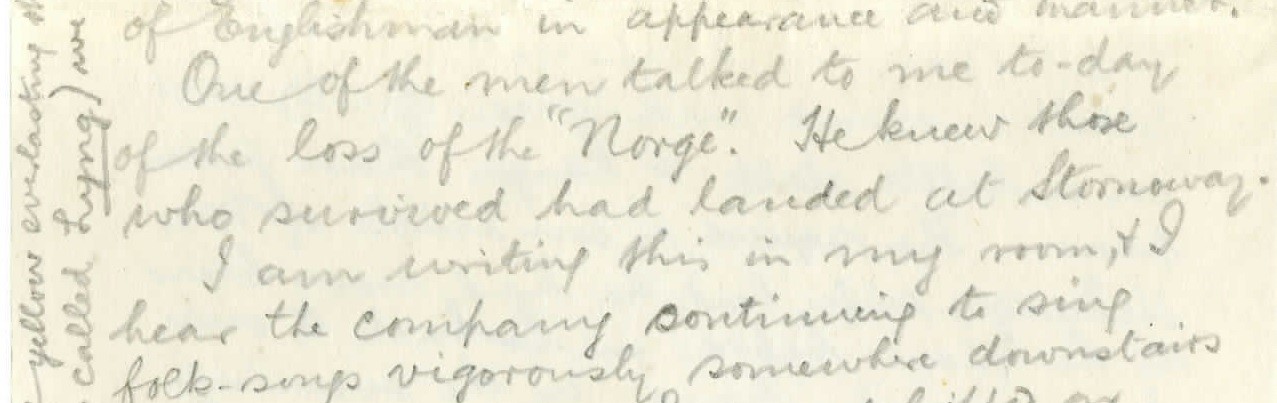 of Englishman in appearance and manner.
One of the men talked to me to-day
of the loss of the "Norge". He knew those
who survived had landed at Stornoway.
I am writing this in my room, & I
hear the company continuing to sing
folk-songs vigorously somewhere downstairs
yellow everlasting
called Lyng) we